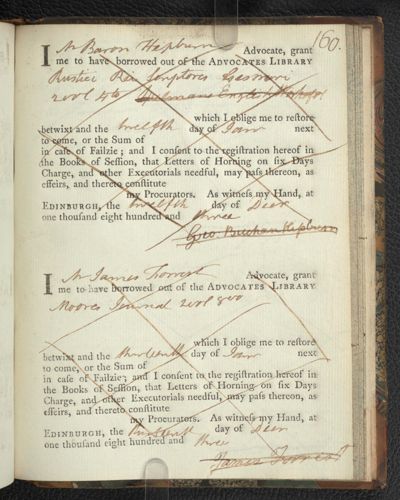 160.
I Mr Baron Hepburn Advocate, grant
me to have borrowed out of the ADVOCATES LIBRARY
Rustici Rei Scriptores Gesneri
2 vol 4to
which I oblige me to restore
betwixt and the twelfth day of Jany next
to come, or the Sum of
in case of Failzie; and I consent to the registration hereof in
the Books of Session, that Letters of Horning on six Days
Charge, and other Executorials needful, may pass thereon, as
effeirs, and thereto constitute
my Procurators. As witness my Hand, at
EDINBURGH, the twelfth day of Decr
one thousand eight hundred and three
Geo Buchan Hepburn
I Mr James Forrest Advocate, grant
me to have borrowed out of the ADVOCATES LIBRARY
Moores Journal 2 vol 8vo
which I oblige me to restore
betwixt and the thirteenth day of Jany next
to come, or the Sum of
in case of Failzie; and I consent to the registration hereof in
the Books of Session, that Letters of Horning on six Days
Charge, and other Executorials needful, may pass thereon, as
effeirs, and thereto constitute
my Procurators. As witness my Hand, at
EDINBURGH, the thirteenth day of Decr
one thousand eight hundred and three
James Forrest